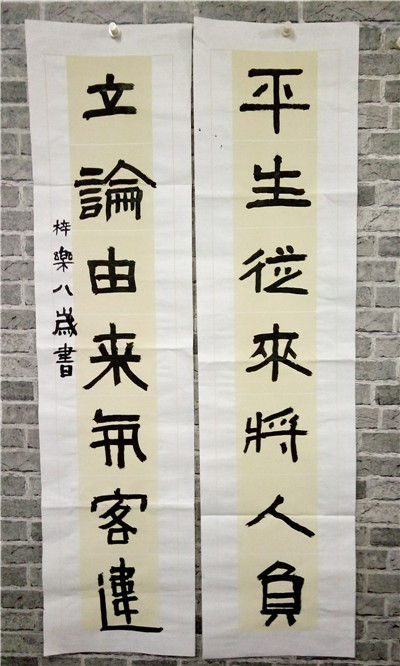 平生從來將人負
立論由来客違
梓樂八歲書